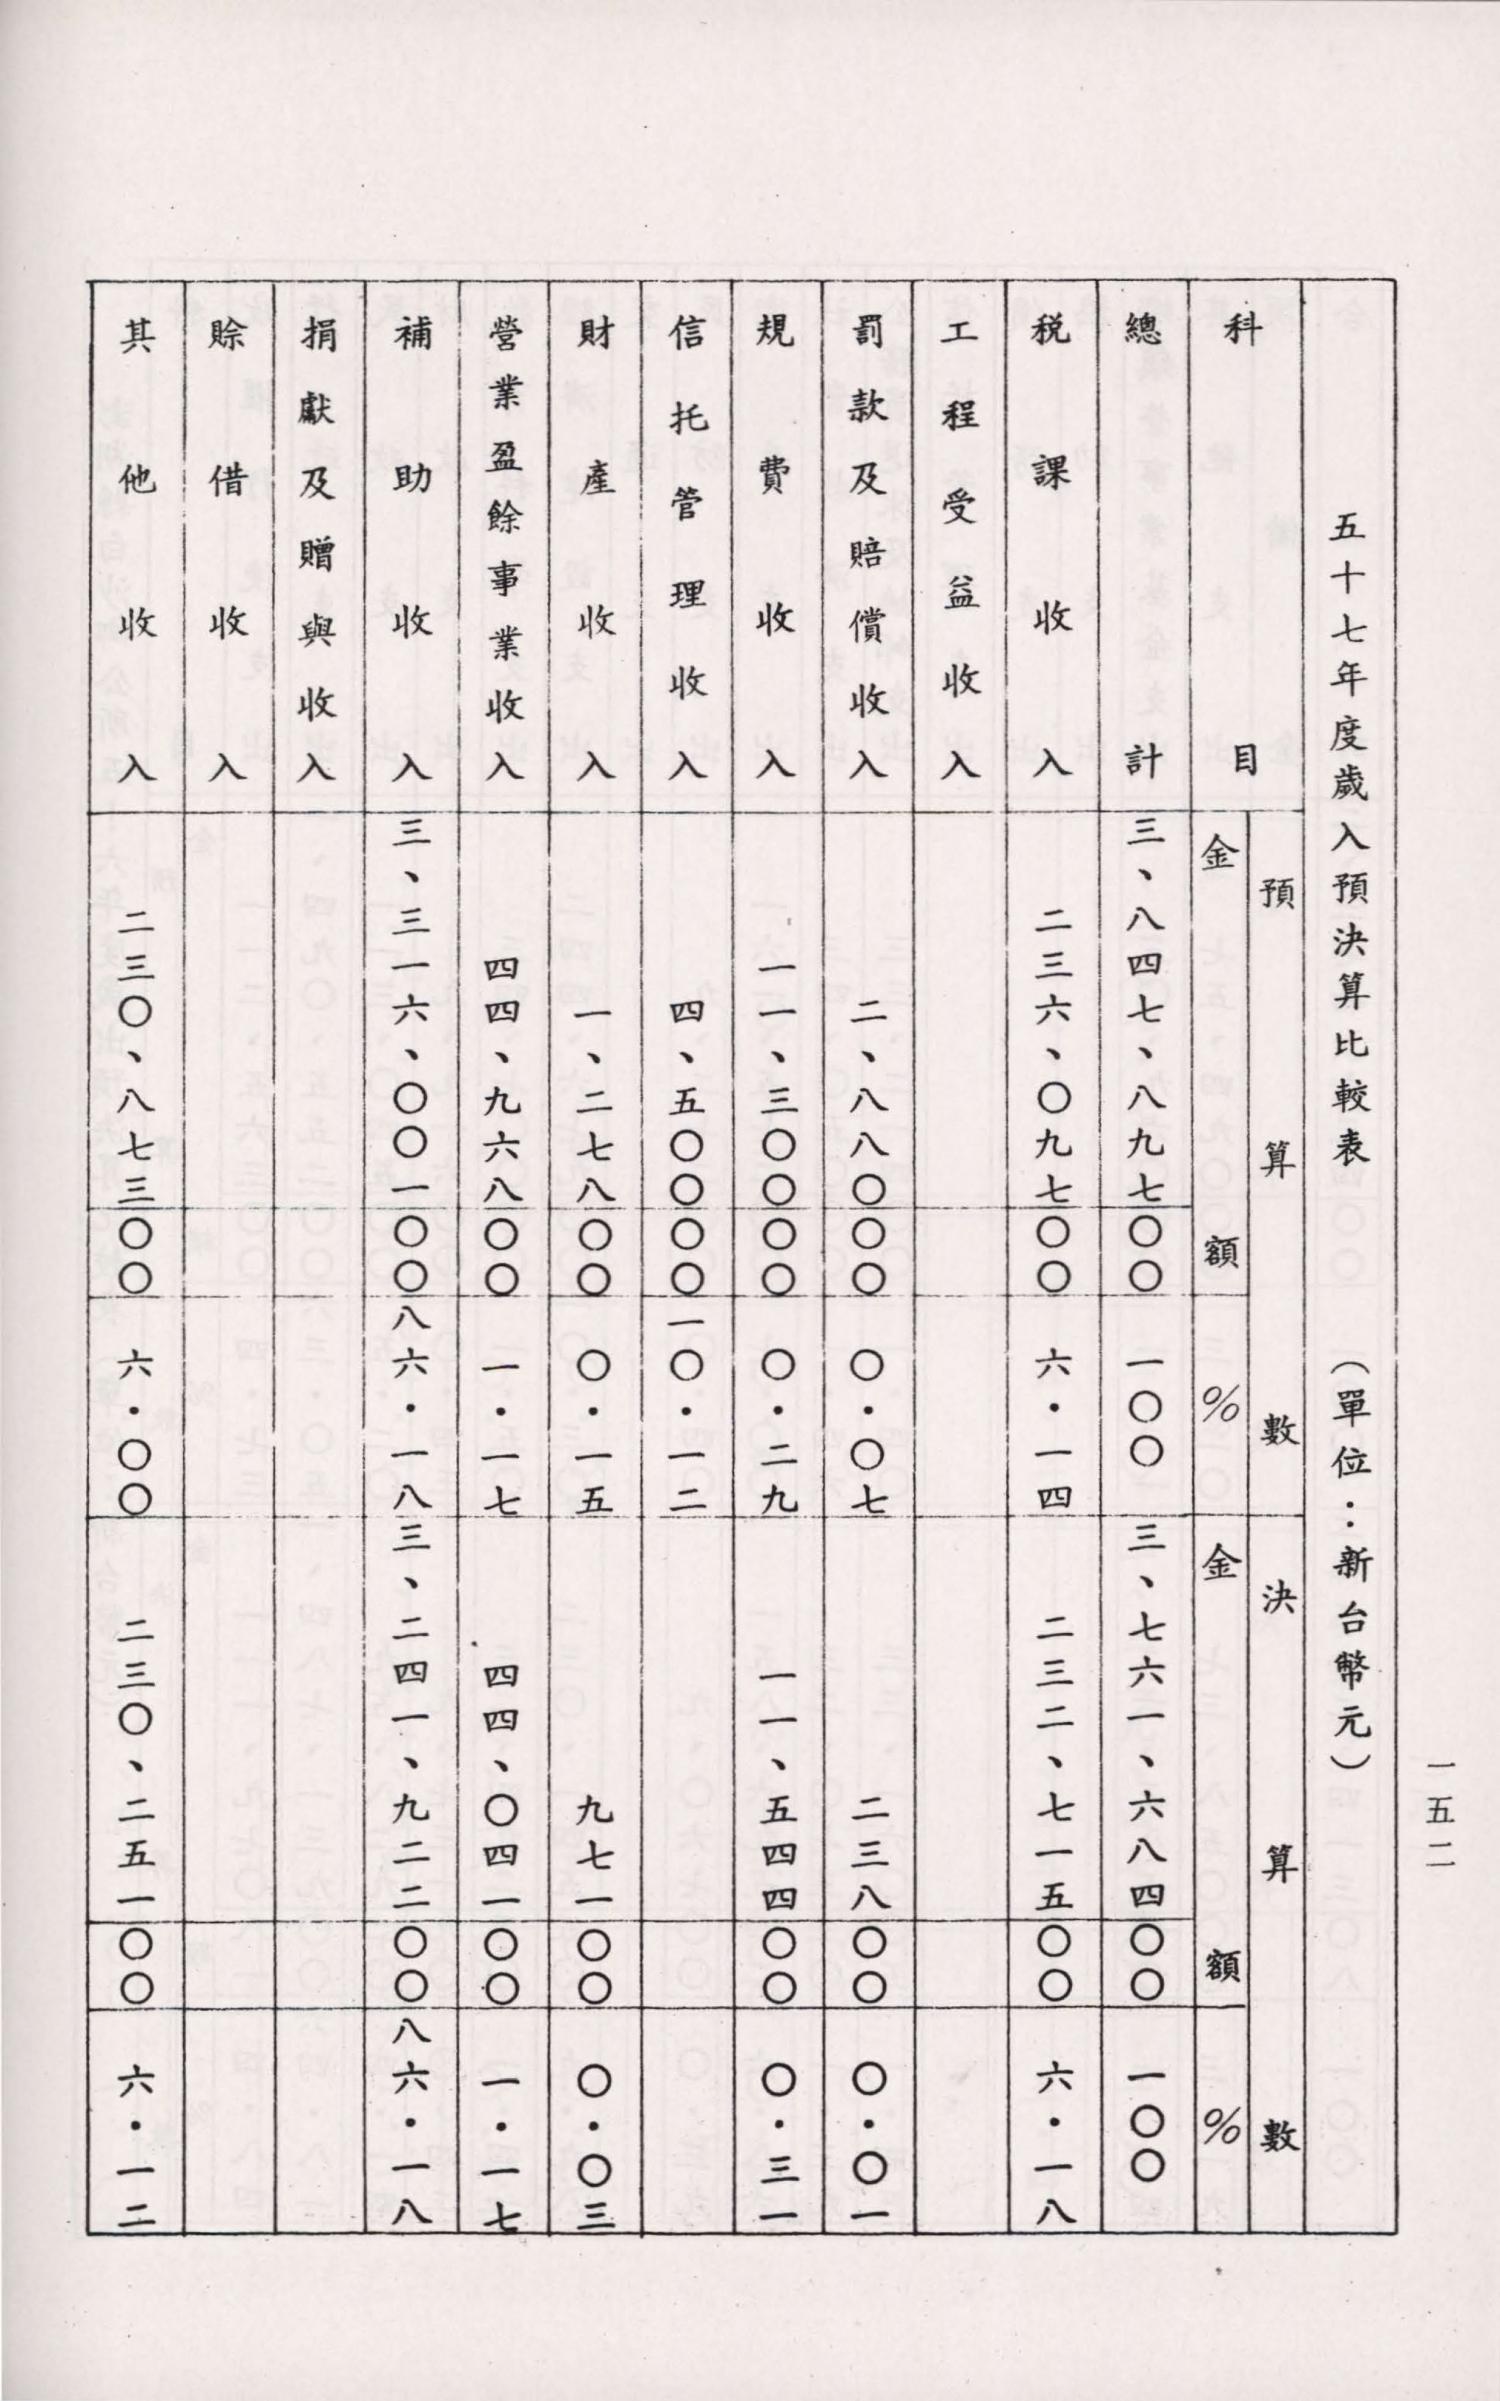 五十七年度歲入預決算比較表 (單位：新台幣元)
科目 預算數 決算數
金額 % 金額 %
總計 三、八四七、八九七〇〇 一〇〇 三、七六一、六八四〇〇 一〇〇
稅課收入 二三六、〇九七〇〇 六·一四 二三二、七一五〇〇 六·一八
工程受益收入
罰款及賠償收入 二、八八〇〇〇 〇·〇七 二三八〇〇 〇·〇一
規費收入 一一、三〇〇〇〇 〇·二九 一一、五四四〇〇 〇·三一
信托管理收入 四、五〇〇〇〇 一〇·一二
財產收入 一、二七八〇〇 〇·一五 九七一〇〇 〇·〇三
營業盈餘事業收入 四四、九六八〇〇 一·一七 四四、〇四一〇〇 一·一七
補助收入 三、三一六、〇〇一〇〇 八六·一八 三、二四一、九二二〇〇 八六·一八
捐獻及贈與收入
賒借收入
其他收入 二三〇、八七三〇〇 六·〇〇 二三〇、二五一〇〇 六·一二
一五二